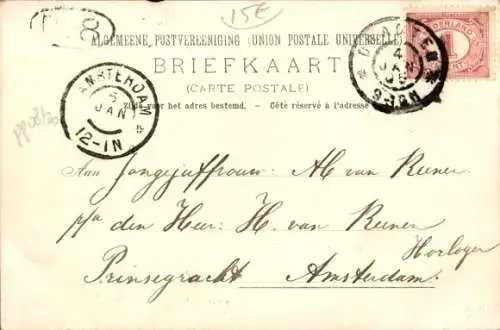 15E
ALGEMEENE POSTVEREENIGING (UNION POSTALE UNIVERSELLE)
BRIEFKAART
(CARTE POSTALE)
Zijde voor het adres bestemd. – Côté réservé à l'adresse
NEDERLAND
1
4
JAN
AMSTERDAM
5
JAN
12-1N
Aan Jongejuffrouw: Ab van Reenen
p/a den Heer: H. van Reenen
Horloger
Prinsegracht Amsterdam.